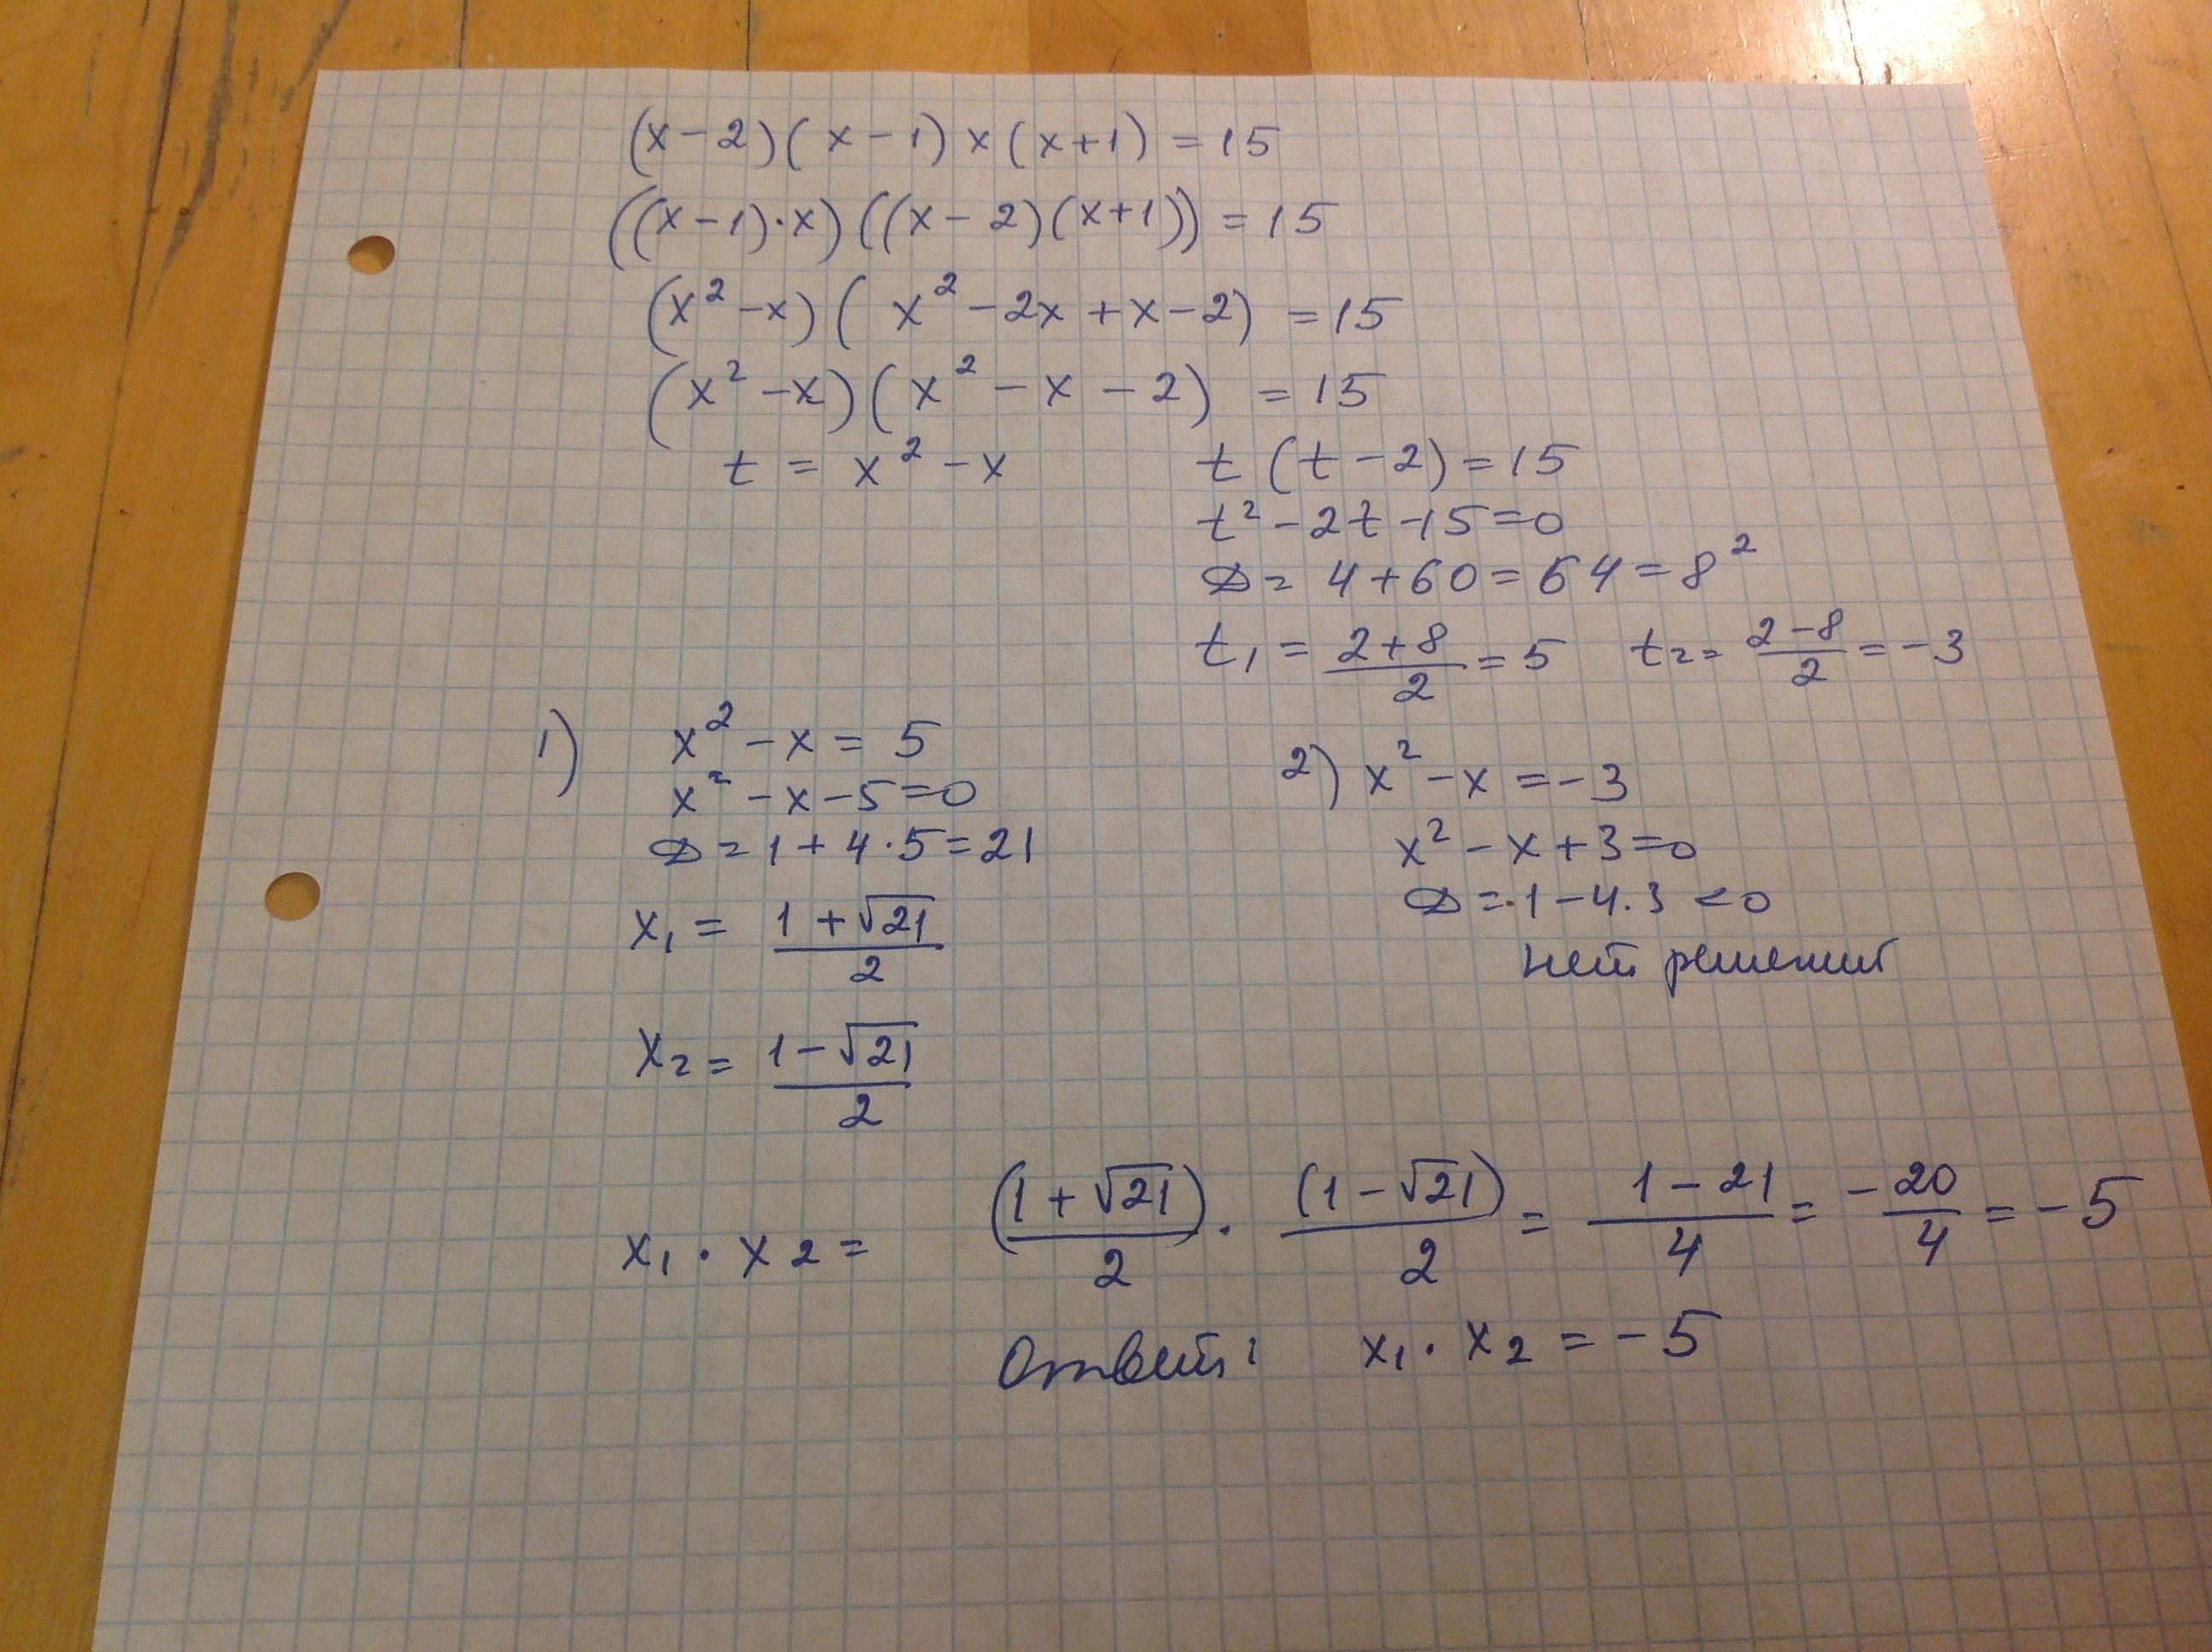 (x-2)(x-1)x(x+1) = 15
((x-1)·x)((x-2)(x+1)) = 15
(x²-x)(x²-2x+x-2) = 15
(x²-x)(x²-x-2) = 15
t = x²-x
t(t-2) = 15
t²-2t-15=0
D = 4+60 = 64 = 8²
t₁ = (2+8)/2 = 5 t₂ = (2-8)/2 = -3
1) x²-x = 5
x²-x-5=0
D = 1+4·5 = 21
x₁ = (1+√21)/2
x₂ = (1-√21)/2
2) x²-x = -3
x²-x+3=0
D = 1-4·3 <0
нет решений
x₁·x₂ = (1+√21)/2 · (1-√21)/2 = (1-21)/4 = -20/4 = -5
Ответ: x₁·x₂ = -5